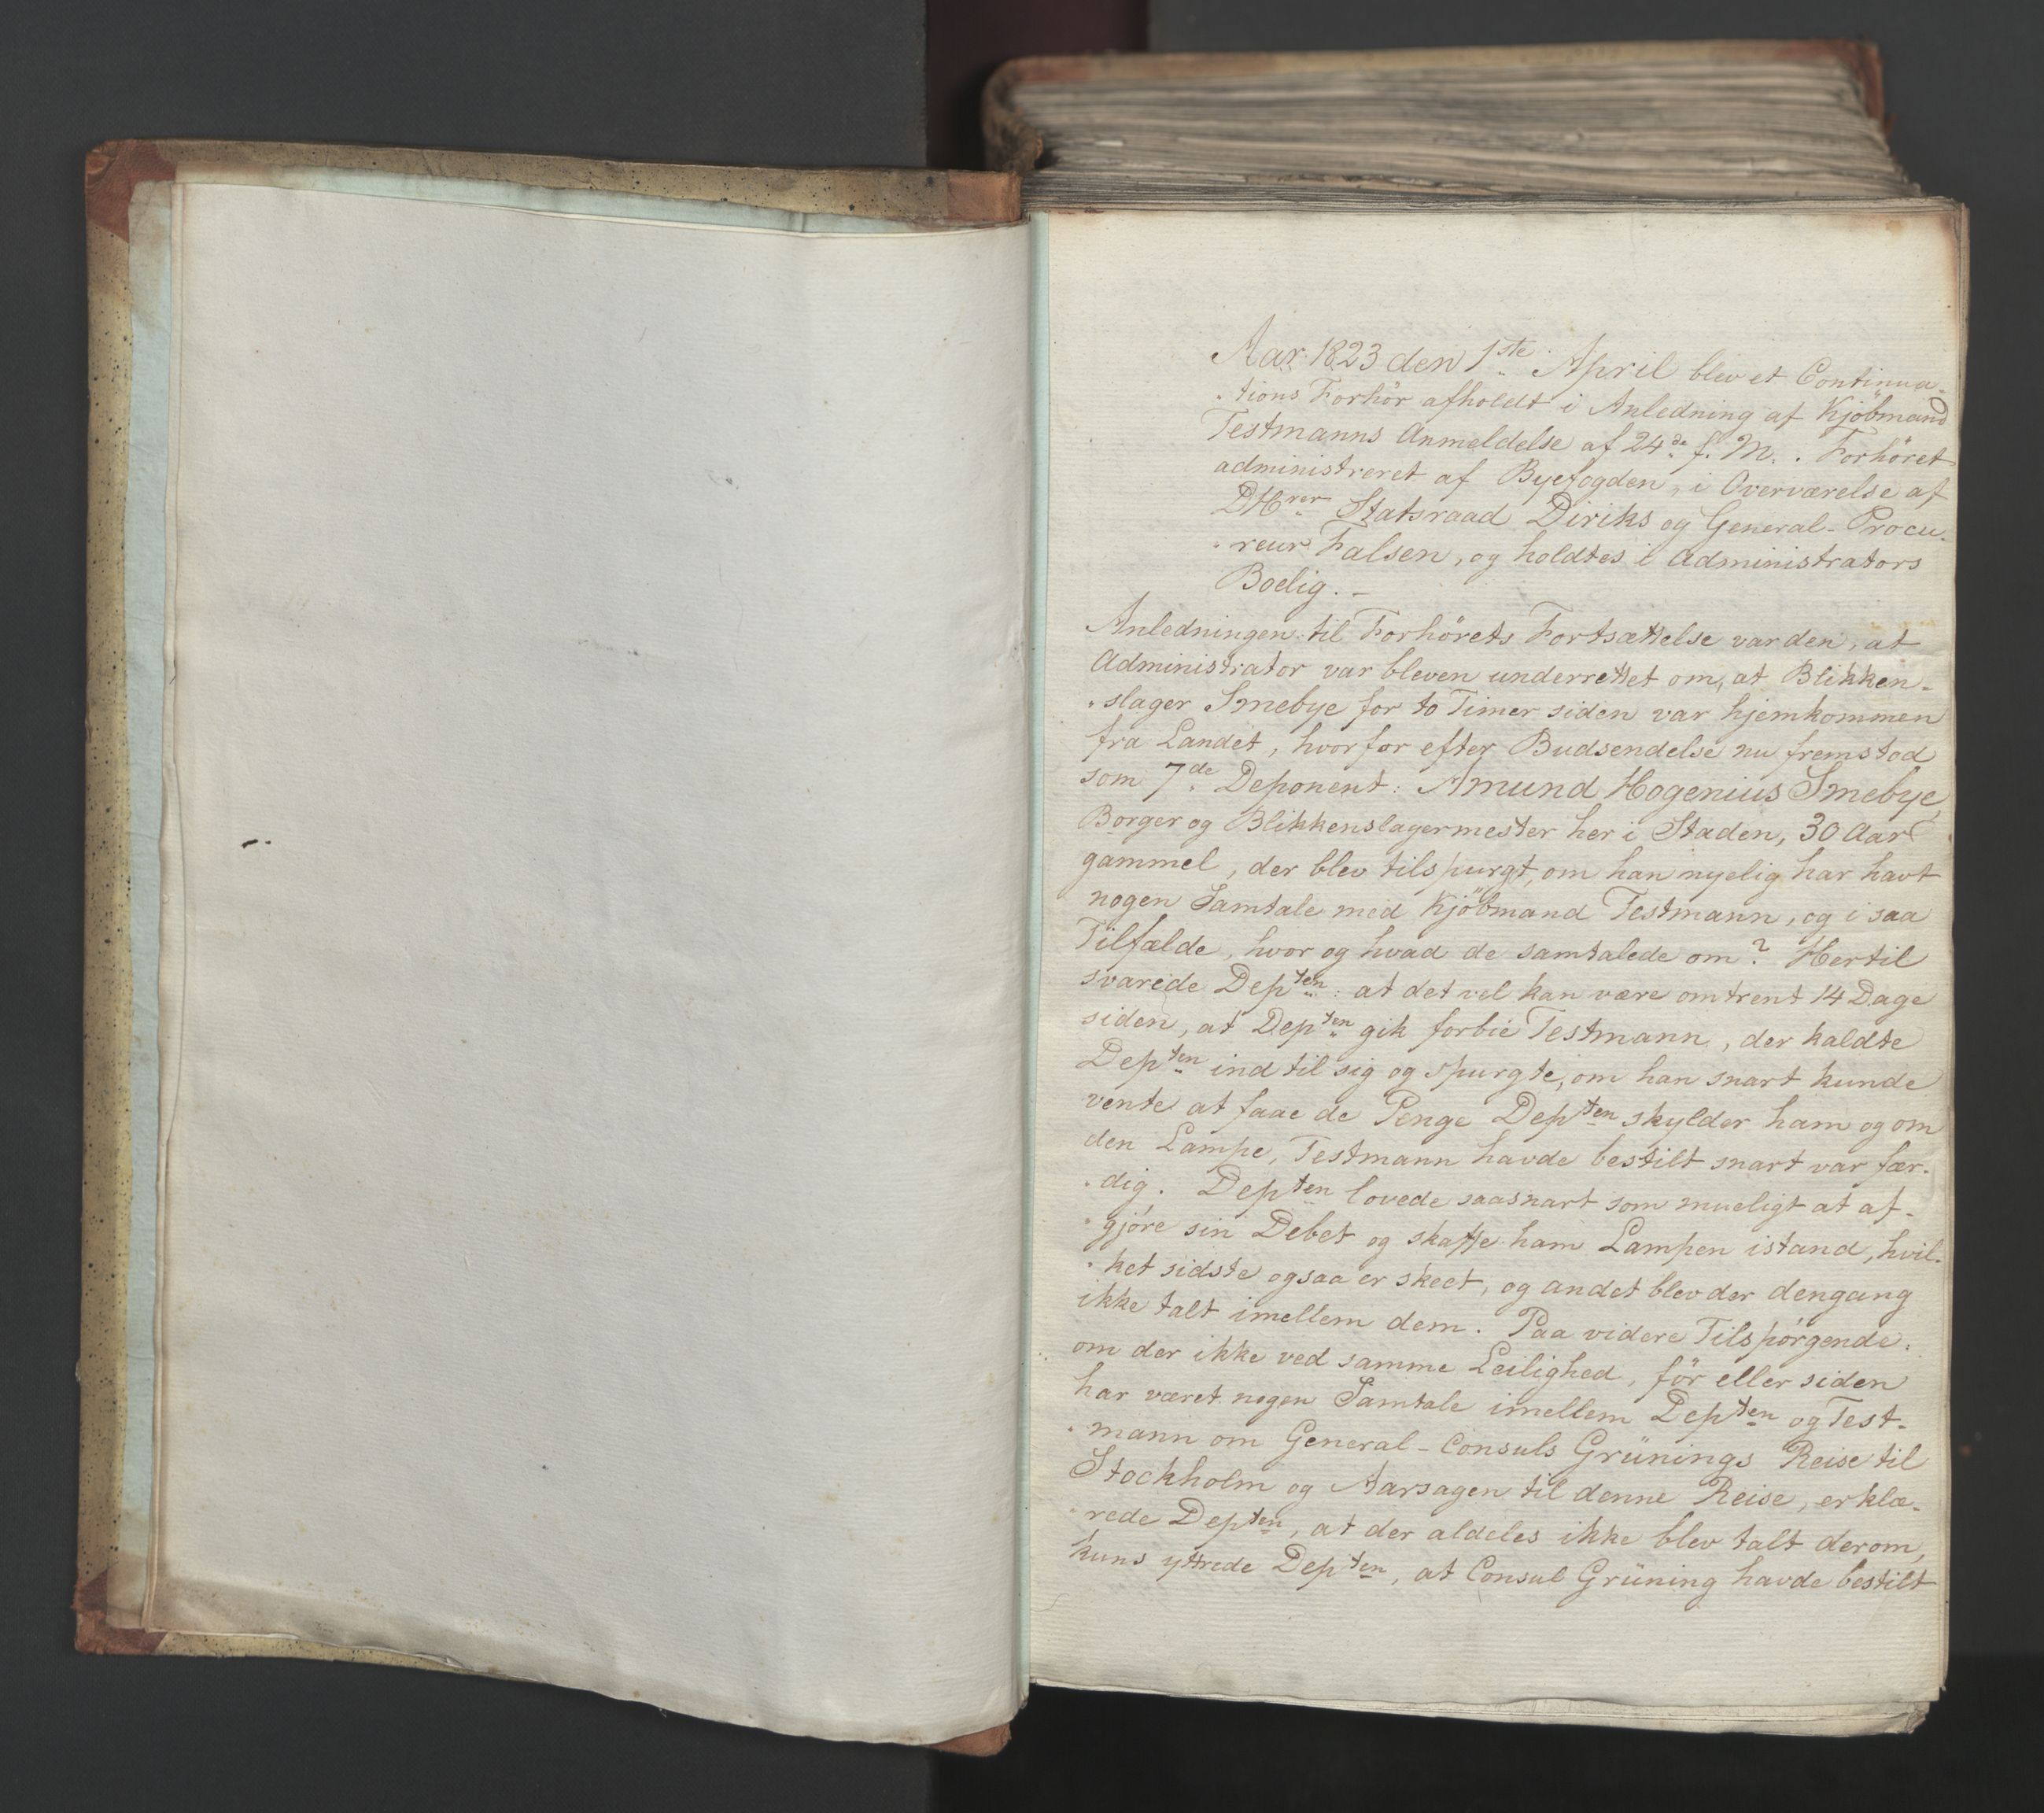 Aar 1823 den 1ste April blev et Continua-
tions Forhör afholdt i Anledning af Kjöbmand
Testmanns Anmeldelse af 24de f. M. . Forhöret
administreret af Byefogden, i Overværelse af
DHrer Statsraad Diriks og General-Procu-
reur Falsen, og holdtes i Administrators
Boelig. –
Anledningen til Forhörets Fortsættelse var den, at
Administrator var bleven underrettet om, at Blikken-
slager Smebye for to Timer siden var hjemkommen
fra Landet, hvorfor efter Budsendelse nu fremstod
som 7de Deponent: Amund Hogenius Smebye
Borger og Blikkenslagermester her i Staden, 30 Aar
gammel, der blev tilspurgt, om han nyelig har havt
nogen Samtale med Kjöbmand Testmann, og i saa
Tilfælde, hvor og hvad de samtalede om? Hertil
svarede Depten: at det vel kan være omtrent 14 Dage
siden, at Depten gik forbie Testmann, der kaldte
Depten ind til sig og spurgte, om han snart kunde
vente at faae de Penge Depten skylder ham og om
den Lampe, Testmann havde bestilt snart var fær-
dig. Depten lovede saasnart som mueligt at af-
gjöre sin Debet og skaffe ham Lampen istand, hvil-
ket sidste ogsaa er skeet, og andet blev der dengang
ikke talt imellem dem. Paa videre Tilspörgende:
om der ikke ved samme Leilighed, för eller siden
har været nogen Samtale imellem Depten og Test-
mann om General-Consuls Grünings Reise til
Stockholm og Aarsagen til denne Reise, erklæ-
rede Depten, at der aldeles ikke blev talt derom,
kuns yttrede Depten, at Consul Grüning havde bestilt